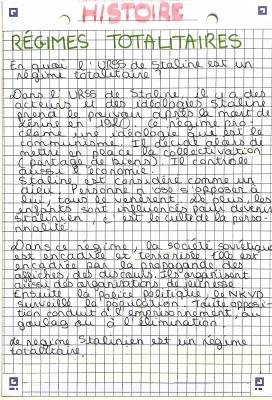 HISTOIRE
RÉGIMES TOTALITAIRES
En quoi l'URSS de Staline est un
régime totalitaire ?
Dans l'URSS de Staline, il y a des
acteurs et des idéologies. Staline
prend le pouvoir après la mort de
Lénine en 1924. Ce régime pro-
clame une idéologie qui est le
communisme. Il décide alors de
mettre en place la collectivation
(partage de biens). Il contrôle
aussi l'économie.
Staline est considéré comme un
dieu. Personne n'ose s'opposer à
lui, tous le vénèrent. De plus, les
enfants sont influencés pour devenir
stalinien, c'est le culte de la perso-
nnalité.
Dans ce régime, la société soviétique
est encadrée et terrorisée. Elle est
encadrée par la propagande des
affiches, des discours. Ils organisent
aussi des organisations de jeunesse
Ensuite la police politique, le NKVD
surveille la population. Toute opposi-
tion conduit à l'emprisonnement, au
goulag ou à l'élimination.
Le régime Stalinien est un régime
totalitaire.